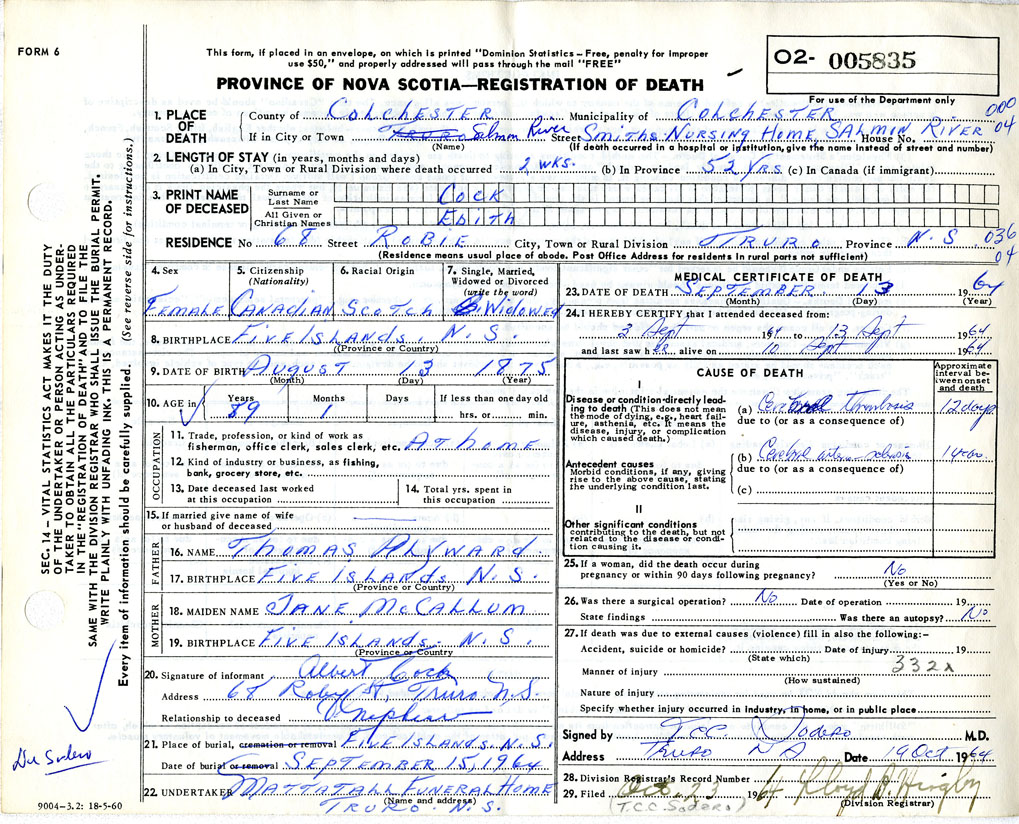 FORM 6
This form, if placed in an envelope, on which is printed "Dominion Statistics – Free, penalty for improper
use $50," and properly addressed will pass through the mail "FREE"
PROVINCE OF NOVA SCOTIA—REGISTRATION OF DEATH
O2- 005835
For use of the Department only
1. PLACE OF DEATH
County of COLCHESTER Municipality of COLCHESTER 000
If in City or Town TRURO Salmon River Street SMITHS NURSING HOME SALMON RIVER House No. 04
(Name) (If death occurred in a hospital or institution, give the name instead of street and number)
2. LENGTH OF STAY (in years, months and days)
(a) In City, Town or Rural Division where death occurred 2 WKS. (b) In Province 52 YRS. (c) In Canada (if immigrant)
3. PRINT NAME OF DECEASED
Surname or Last Name COCK
All Given or Christian Names EDITH
RESIDENCE No 68 Street ROBIE City, Town or Rural Division TRURO Province N.S. 036
(Residence means usual place of abode. Post Office Address for residents in rural parts not sufficient) 04
4. Sex
Female
5. Citizenship
(Nationality)
CANADIAN
6. Racial Origin
SCOTCH
7. Single, Married, Widowed or Divorced
(write the word)
WIDOWED
8. BIRTHPLACE FIVE ISLANDS N.S.
(Province or Country)
9. DATE OF BIRTH AUGUST 13 1875
(Month) (Day) (Year)
10. AGE in Years Months Days If less than one day old
89 1 hrs. or min.
OCCUPATION
11. Trade, profession, or kind of work as
fisherman, office clerk, sales clerk, etc. AT HOME
12. Kind of industry or business, as fishing,
bank, grocery store, etc.
13. Date deceased last worked
at this occupation
14. Total yrs. spent in
this occupation
15. If married give name of wife
or husband of deceased
FATHER
16. NAME THOMAS AYWARD
17. BIRTHPLACE FIVE ISLANDS N.S.
(Province or Country)
MOTHER
18. MAIDEN NAME JANE MCCALLUM
19. BIRTHPLACE FIVE ISLANDS. N.S.
(Province or Country)
20. Signature of informant Albert Cock
Address 68 Roby St, Truro N.S.
Relationship to deceased Nephew
21. Place of burial, cremation or removal FIVE ISLANDS, N.S.
Date of burial or removal SEPTEMBER 15, 1964
22. UNDERTAKER MATTATALL FUNERAL HOME
(Name and address)
TRURO. N.S.
MEDICAL CERTIFICATE OF DEATH
23. DATE OF DEATH SEPTEMBER. 13 1964
(Month) (Day) (Year)
24. I HEREBY CERTIFY that I attended deceased from:
2 Sept 1964 to 13 Sept 1964
and last saw her alive on 10 Sept 1964
CAUSE OF DEATH
Approximate interval between onset and death
I
Disease or condition-directly leading
to death (This does not mean
the mode of dying, e.g., heart failure,
asthenia, etc. It means the
disease, injury, or complication
which caused death.)
(a) Cerebral thrombosis 12 days
due to (or as a consequence of)
Antecedent causes
Morbid conditions, if any, giving
rise to the above cause, stating
the underlying condition last.
(b) Cerebral
due to (or as a consequence of)
(c)
II
Other significant conditions
contributing to the death, but not
related to the disease or condition
causing it.
25. If a woman, did the death occur during
pregnancy or within 90 days following pregnancy? No
(Yes or No)
26. Was there a surgical operation? No Date of operation 19
State findings Was there an autopsy? No
27. If death was due to external causes (violence) fill in also the following:–
Accident, suicide or homicide? Date of injury 19
(State which)
332x
Manner of injury
(How sustained)
Nature of injury
Specify whether injury occurred in industry, in home, or in public place
Signed by T.C.C. Sodero M.D.
Address Truro N S Date 19 Oct 1964
28. Division Registrar's Record Number
29. Filed Oct. 23 1964
(Division Registrar)
(T.C.C. Sodero)
SEC. 14 – VITAL STATISTICS ACT MAKES IT THE DUTY
OF THE UNDERTAKER OR PERSON ACTING AS UNDERTAKER
TO OBTAIN ALL THE PARTICULARS REQUIRED
IN THE "REGISTRATION OF DEATH" AND TO FILE THE
SAME WITH THE DIVISION REGISTRAR WHO SHALL ISSUE THE BURIAL PERMIT.
WRITE PLAINLY WITH UNFADING INK. THIS IS A PERMANENT RECORD.
Every item of information should be carefully supplied. (See reverse side for instructions.)
Dr Sodero
9004–3.2: 18-5-60